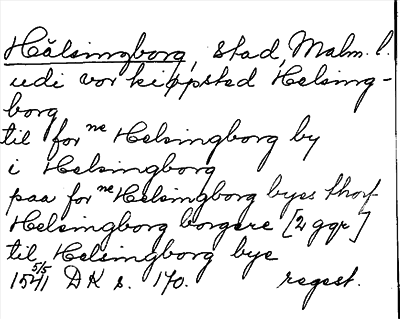 Hälsingborg, stad, Malm. l.
udi vor kiøpsted Helsing-
borg
til for ne Helsingborg by
i Helsingborg
paa for ne Helsingborg byss thorf
Helsingborg borgere [2 ggr]
til Helsingborg bye
15 5/5 41 DK s. 170. regest.